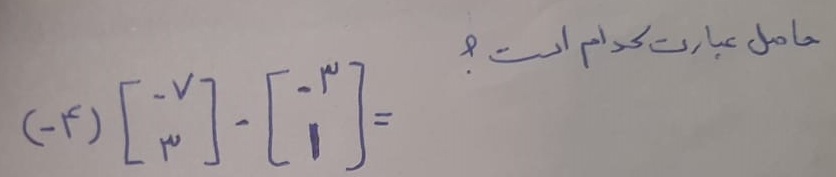 حاصل عبارت کدام است؟
(-۴) [-۷ ۳] - [-۳ ۱] =